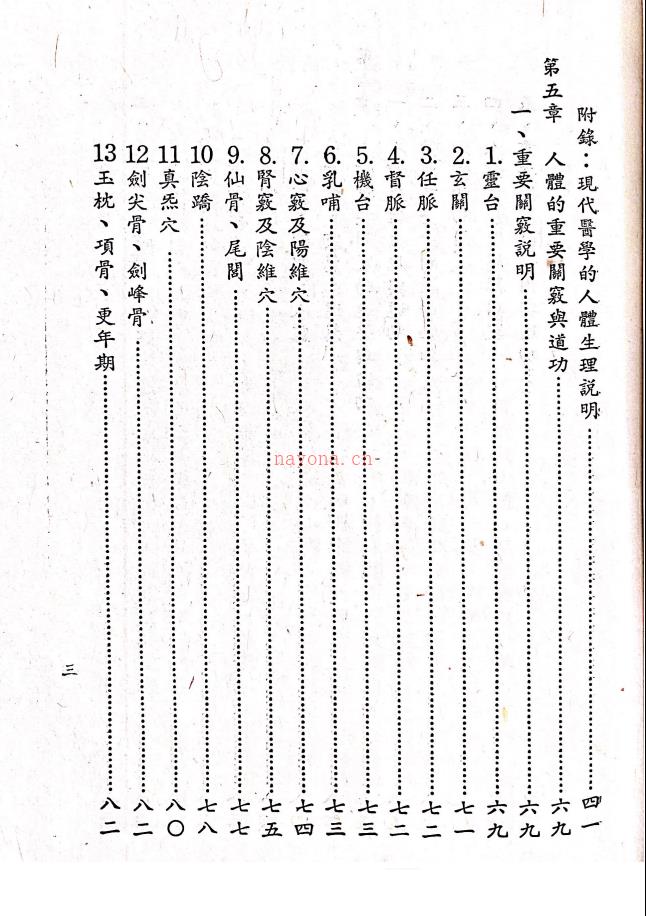 附錄：現代醫學的人體生理説明……四一
第五章　人體的重要關竅與道功……六九
一、重要關竅説明……六九
1.靈台……六九
2.玄關……七一
3.任脈……七二
4.督脈……七二
5.機台……七三
6.乳哺……七三
7.心竅及陽維穴……七四
8.腎竅及陰維穴……七五
9.仙骨、尾閭……七七
10陰蹻……七八
11真炁穴……八〇
12劍尖骨、劍峰骨……八二
13玉枕、項骨、更年期……八二
三
nayona.cn